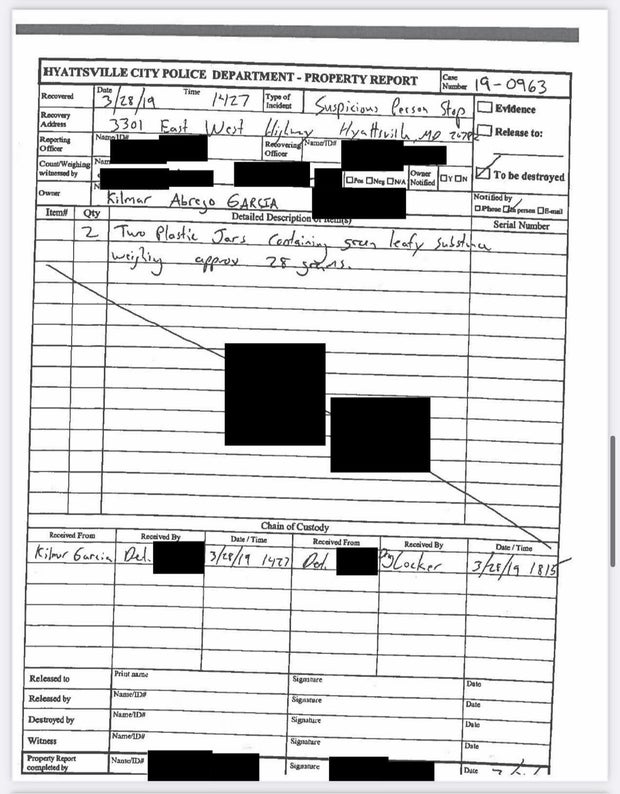 HYATTSVILLE CITY POLICE DEPARTMENT - PROPERTY REPORT
Case Number 19-0963
Recovered Date 3/28/19 Time 1427 Type of Incident Suspicious Person Stop
Evidence
Recovery Address 3301 East West Highway Hyattsville, MD
Release to:
Reporting Officer Name/ID# Recovering Officer Name/ID#
To be destroyed
Count/Weighing witnessed by Pos Neg N/A Owner Notified Y N
Owner Kilmar Abrego GARCIA
Notified by Phone In person E-mail
Item# Qty Detailed Description of Item(s) Serial Number
2 Two Plastic Jars containing green leafy substance
weighing approx 28 grams.
Chain of Custody
Received From Received By Date / Time Received From Received By Date / Time
Kilmar Garcia Det. 3/28/19 1427 Det. Locker 3/28/19 1815
Released to Print name Signature Date
Released by Name/ID# Signature Date
Destroyed by Name/ID# Signature Date
Witness Name/ID# Signature Date
Property Report completed by Name/ID# Signature Date